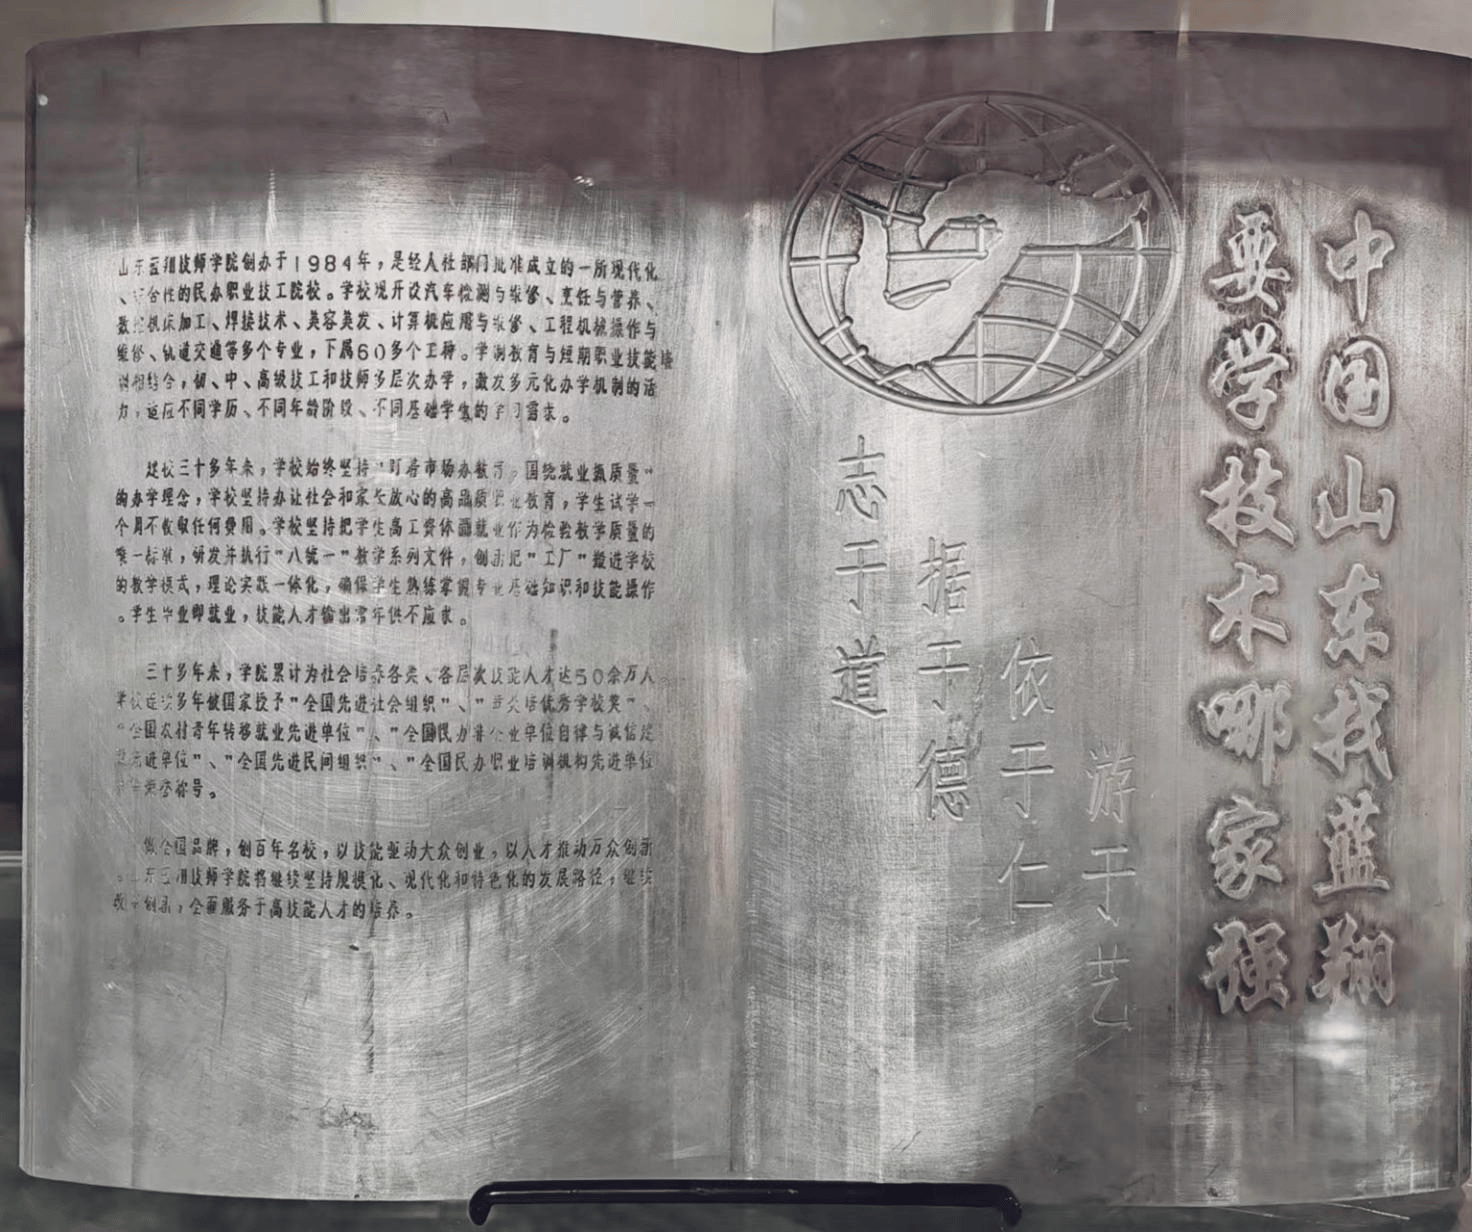 山东蓝翔技师学院创办于1984年，是经人社部门批准成立的一所现代化
、综合性的民办职业技工院校。学校现开设汽车检测与维修、烹饪与营养、
数控机床加工、焊接技术、美容美发、计算机应用与维修、工程机械操作与
维修、轨道交通等多个专业，下属60多个工种。学制教育与短期职业技能培
训相结合，初、中、高级技工和技师多层次办学，激发多元化办学机制的活
力，适应不同学历、不同年龄阶段、不同基础学生的学习需求。
建校三十多年来，学校始终坚持"盯着市场办教育，围绕就业抓质量"
的办学理念，学校坚持办让社会和家长放心的高品质职业教育，学生试学一
个月不收取任何费用。学校坚持把学生高工资体面就业作为检验教学质量的
唯一标准，研发并执行"八统一"教学系列文件，创新把"工厂"搬进学校
的教学模式，理论实践一体化，确保学生熟练掌握专业基础知识和技能操作
。学生毕业即就业，技能人才输出常年供不应求。
三十多年来，学院累计为社会培养各类、各层次技能人才达50余万人。
学校连续多年被国家授予"全国先进社会组织"、"培优秀学校奖"、
"全国农村青年转移就业先进单位"、"全国民办非企业单位自律与诚信建
设先进单位"、"全国先进民间组织"、"全国民办职业培训机构先进单位"
等荣誉称号。
做全国品牌，创百年名校，以技能驱动大众创业，以人才推动万众创新
。山东蓝翔技师学院将继续坚持规模化、现代化和特色化的发展路径，继续
改革创新，全面服务于高技能人才的培养。
中国山东找蓝翔
要学技术哪家强
志于道
据于德
依于仁
游于艺